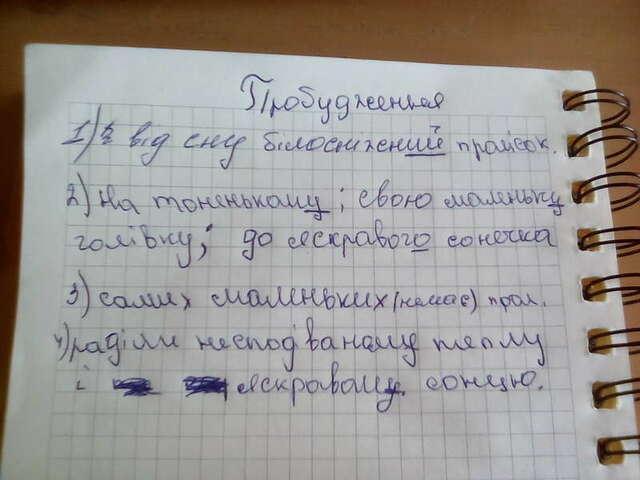 Пробудження
1) від сну білосніжний пролісок.
2) На тоненькому; свою маленьку
голівку; до яскравого сонечка
3) самих маленьких (немає) прол.
4) раділи несподіваному теплу
і яскравому сонцю.